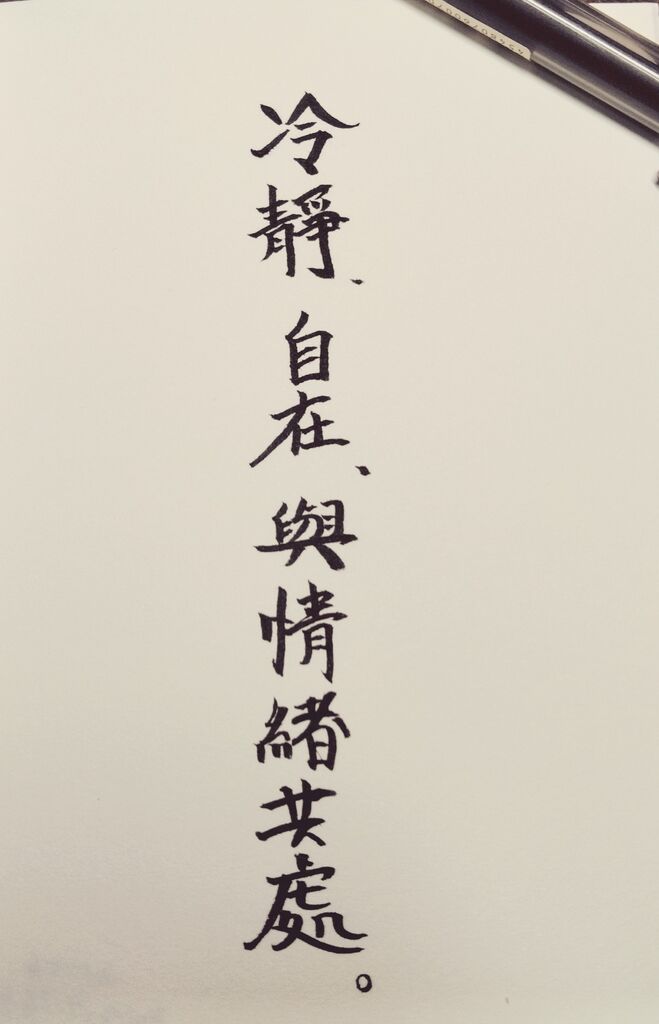 冷靜、自在、與情緒共處。